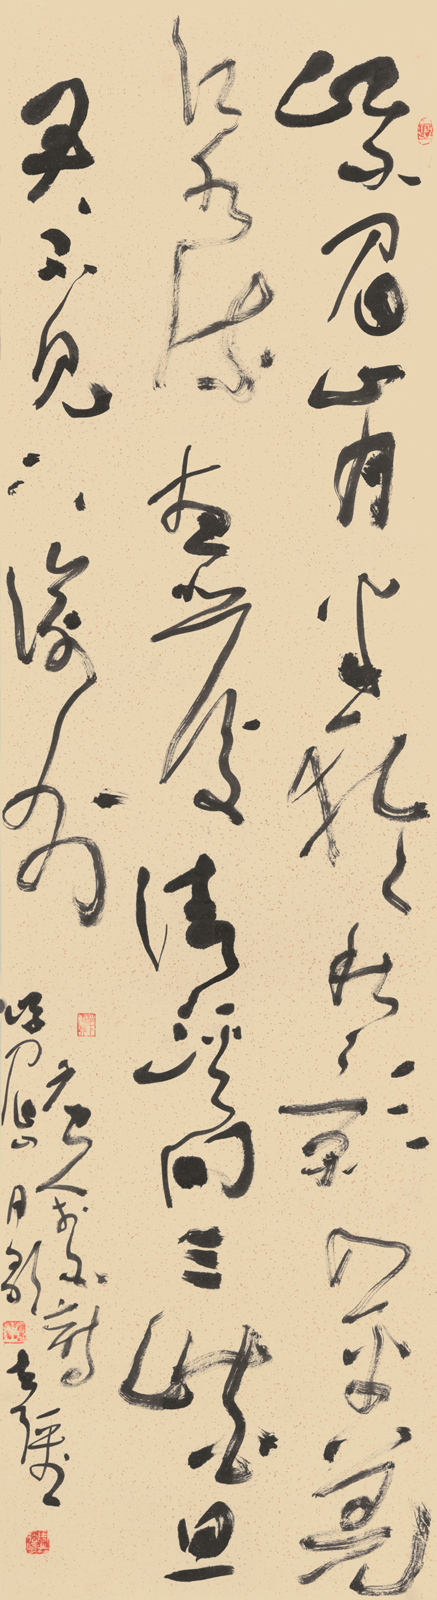 峨眉山月半輪秋影入平羌
江水流夜發清溪向三峽思
君不見下渝州
峨眉山月歌